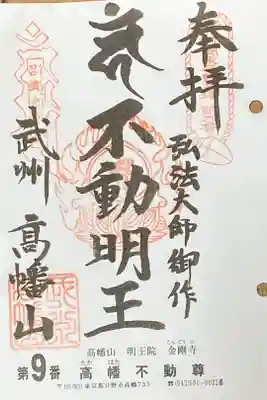 奉拝
弘法大師御作
不動明王
武州 高幡山
高幡山 明王院 金剛寺
こんごうじ
第9番 高幡不動尊
たか はた
東京都日野市高幡733